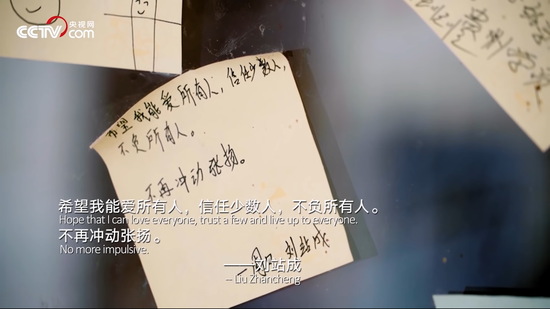 CCTV.com
央视网
希望我能爱所有人，信任少数人，
不负所有人。
不再冲动张扬。
刘站成
希望我能爱所有人，信任少数人，不负所有人。
Hope that I can love everyone, trust a few and live up to everyone.
不再冲动张扬。
No more impulsive.
——刘站成
— Liu Zhancheng